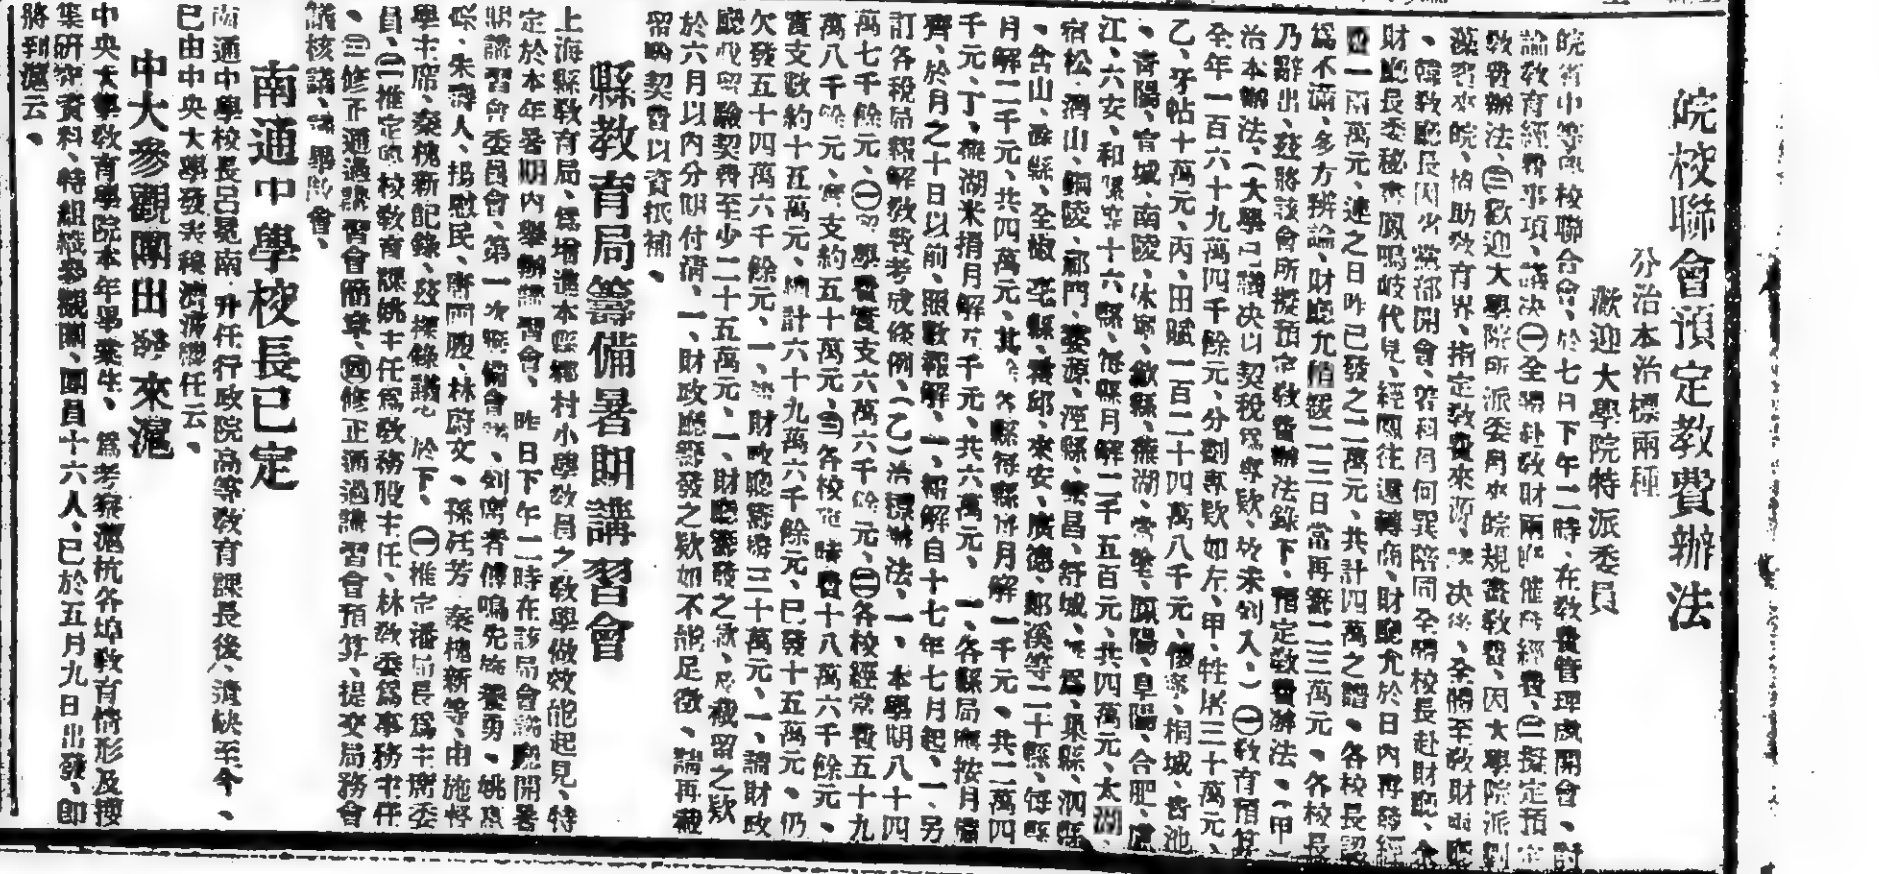 皖校聯會預定教費辦法
分治本治標兩種
歡迎大學院特派委員
皖省中等學校聯合會、於七日下午二時、在教費管理處開會、討
論教育經費事項、議決㊀全體赴教財兩廳催發經費、㊁擬定預定
教費辦法、㊂歡迎大學院所派委員來皖規畫教費、因大學院派劉
來皖、協助教育界、指定教費來源、決後、全體至教財兩廳
、韓教廳長因少黨部開會、陪同全體校長赴財廳、
財廳長委秘書鳳鳴岐代見、經兩往還轉商、財廳允於日內再發經
一兩萬元、連之日昨已發之二萬元、共計四萬之譜、各校長認
爲不滿、多方辨論、財廳允稍緩二三日當再籌二三萬元、各校長
乃辭出、茲將該會所擬預定教費辦法錄下、預定教費辦法、（甲
治本辦法、（大學已議決以契稅爲專欵、故未列入、）㊀教育預算
全年一百六十九萬四千餘元、分劃專欵如左、甲、牲屠三十萬元、
乙、牙帖十萬元、丙、田賦一百二十四萬八千元、懷寧、桐城、貴池
、靑陽、宣城、南陵、休寧、歙縣、蕪湖、當塗、鳳陽、阜陽、合肥、廬
江、六安、和縣等十六縣、每縣月解二千五百元、共四萬元、太湖
宿松、潛山、銅陵、祁門、婺源、涇縣、繁昌、舒城、無爲、巢縣、泗縣
、含山、滁縣、全椒、亳縣、霍邱、來安、廣德、郞溪等二十縣、每縣
月解二千元、共四萬元、其餘各縣每縣每月解一千元、共二萬四
千元、丁、蕪湖米捐月解五千元、共六萬元、一、各縣局應按月備
齊、於月之十日以前、照數報解、一、報解自十七年七月起、一、另
訂各稅局縣解教費考成條例、（乙）治標辦法、一、本學期八十四
萬七千餘元、㊀留學費實支六萬六千餘元、㊁各校經常費五十九
萬八千餘元、實支約五十萬元、㊂各校臨時費十八萬六千餘元、
實支數約十五萬元、總計六十九萬六千餘元、已發十五萬元、仍
欠發五十四萬六千餘元、一、財政廳籌撥三十萬元、一、請財政
廳驗契費至少二十五萬元、一、財廳籌發之欵、及截留之欵
於六月以內分期付清、一、財政廳籌發之欵如不能足徵、請再截
留驗契費以資抵補、
縣教育局籌備暑期講習會
上海縣敎育局、爲增進本縣鄕村小學敎員之敎學做效能起見、特
定於本年暑期內舉辦講習會、昨日下午二時在該局會議廳開暑
期講習會委員會、第一次籌備會議、列席者傅鳴先、施養勇、姚惠
、朱壽人、楊慰民、唐雨膄、林蔚文、孫任芳、秦槐新等、由施督
學主席、秦槐新記錄、茲探錄議决於下、㊀推定潘局長爲主席委
員、㊁推定學校敎育課姚主任爲敎務股主任、林敎委爲事務主任
、㊂修正通過講習會簡章、㊃修正通過講習會預算、提交局務會
議核議、議畢散會、
南通中學校長已定
南通中學校長呂冕南、升任行政院高等敎育課長後、遺缺至今、
已由中央大學發表穆濟波繼任云、
中大參觀團出發來滬
中央大學敎育學院本年畢業生、爲考察滬杭各埠敎育情形及搜
集研究資料、特組織參觀團、團員十六人、已於五月九日出發、卽
將到滬云、